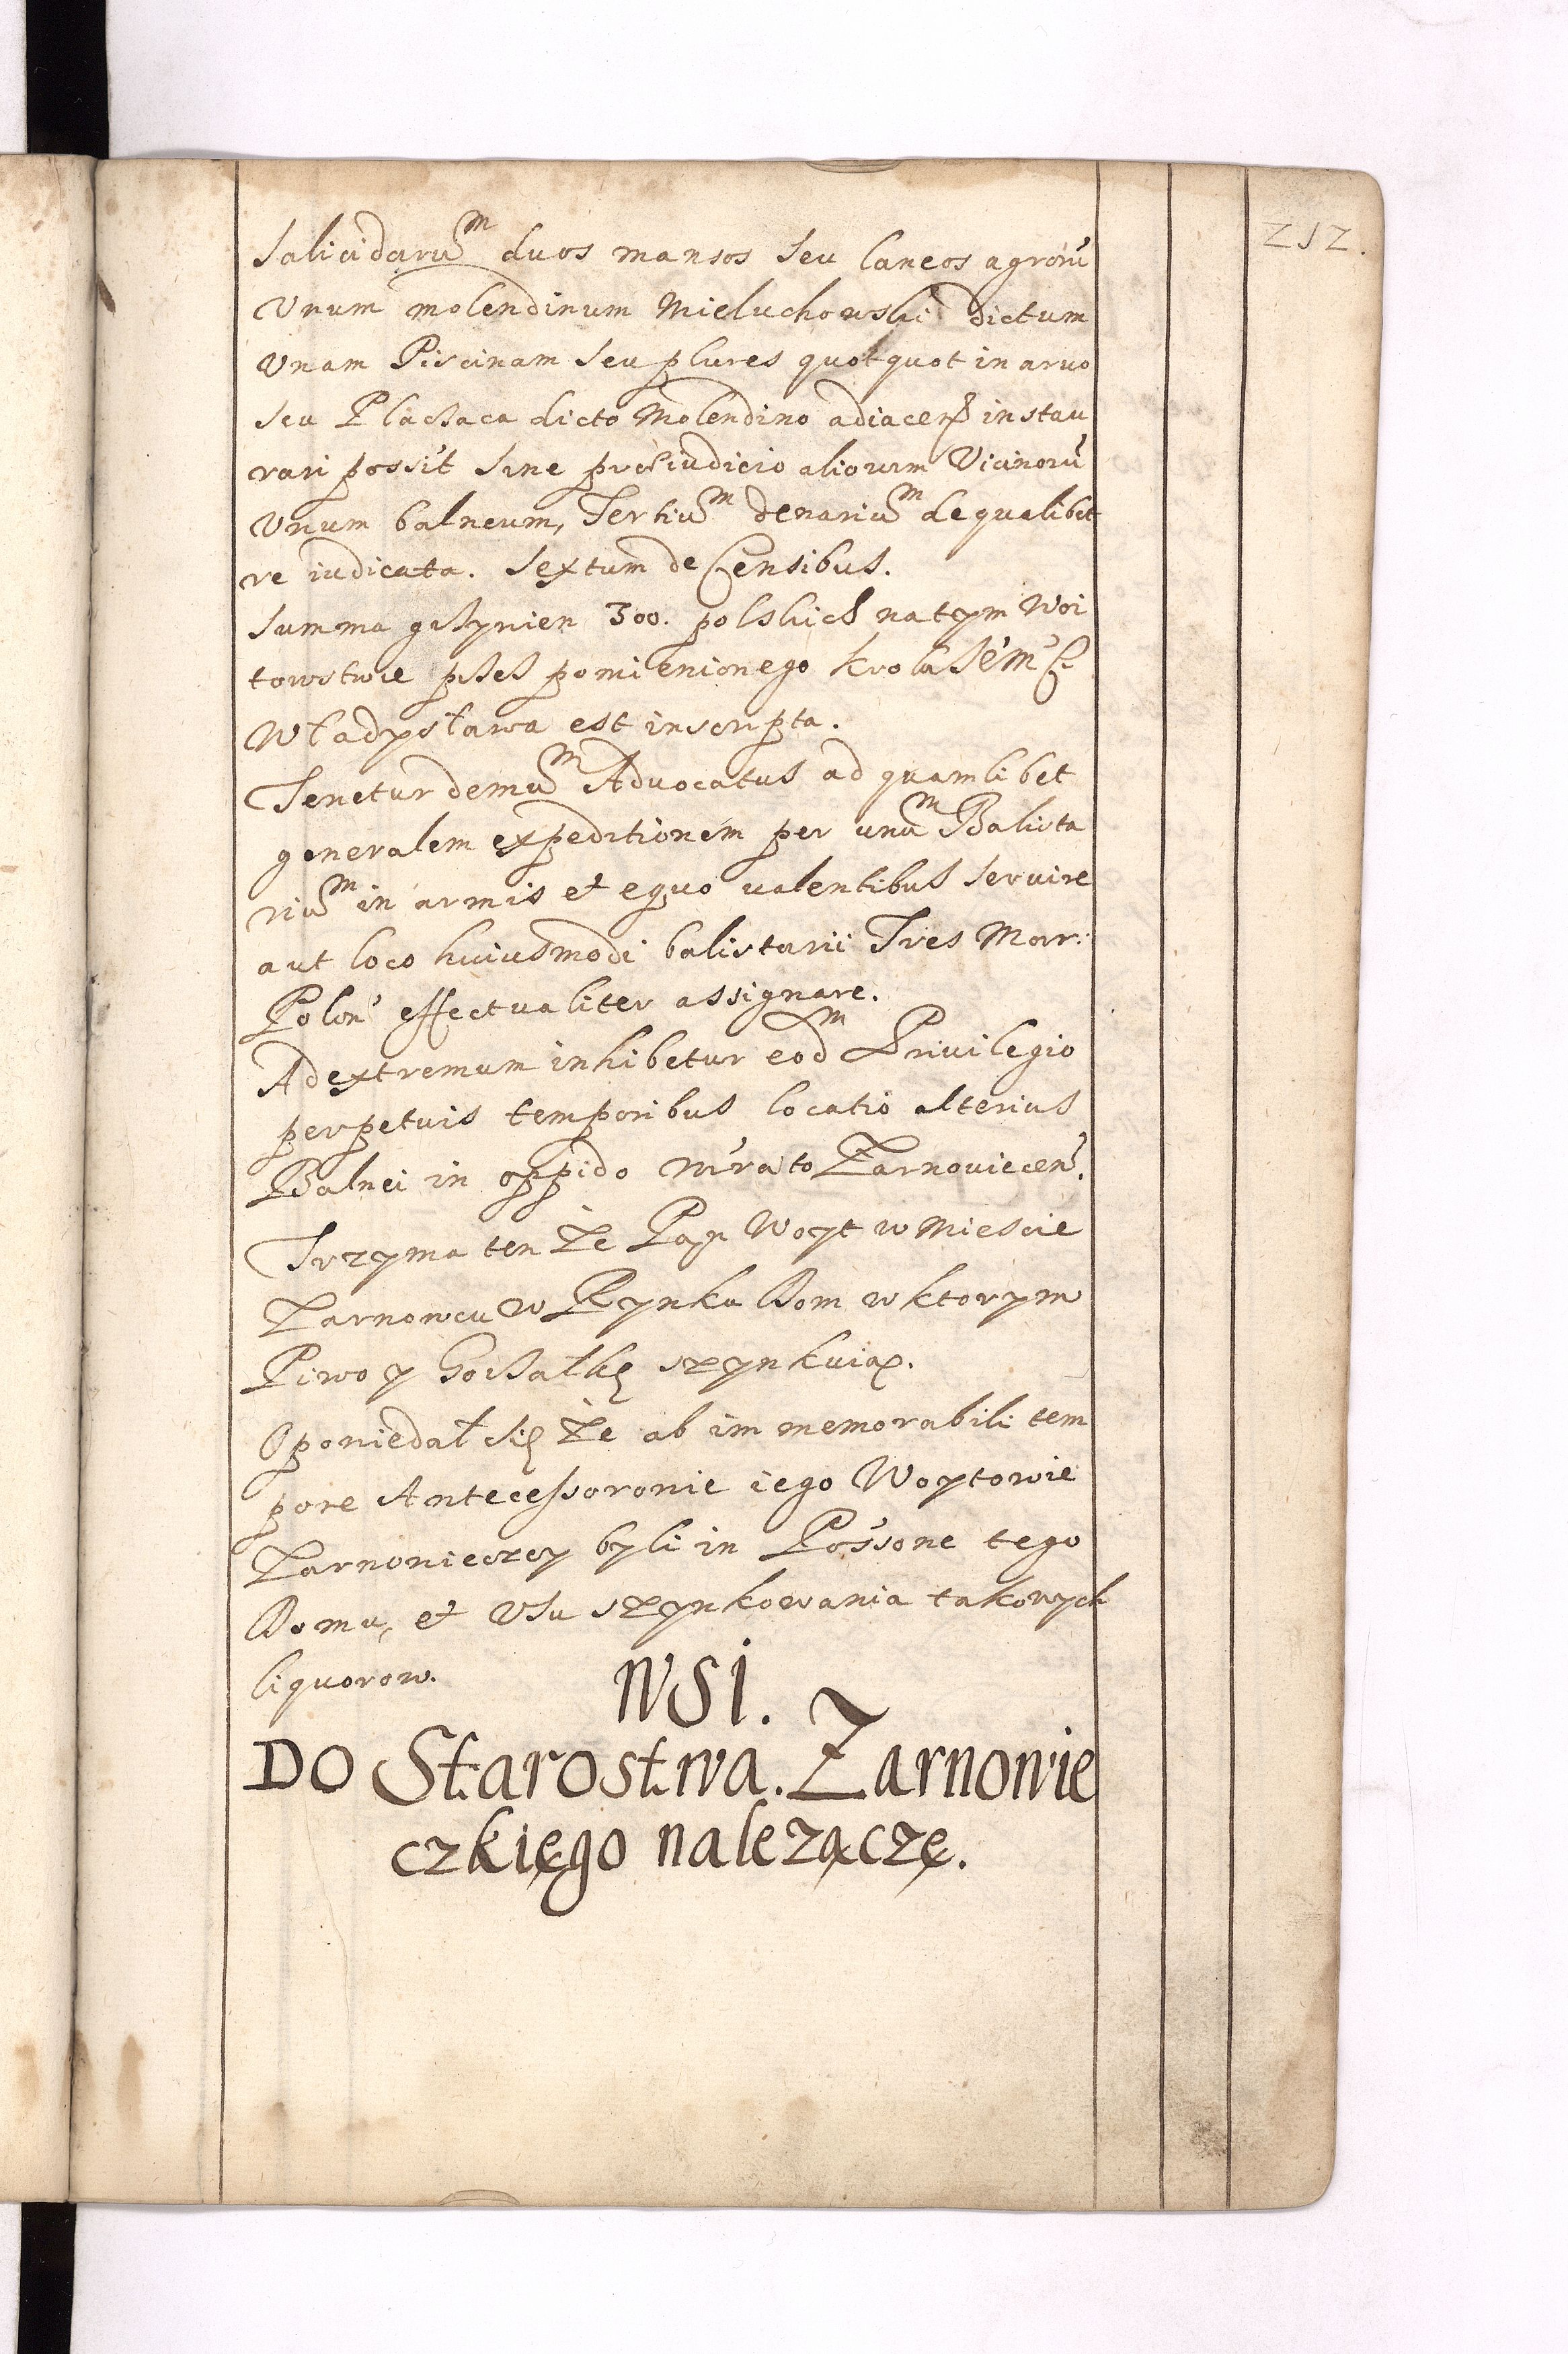 252.
salicidarum duos mansos seu laneos agroru
Vnum molendinum Mieluchowski dictum
Vnam Piscinam seu plures quotquot in aruo
seu dicto Molendino adiacen instau
rari possit sine preiudicio aliorum Vicinoru
Vnum balneum, Tertium denarium de qualibet
re iudicata. Sextum de Censibus.
Summa grzywien 300. polskich na tym Woi
towstwie przez pomienionego krola
Władysława est inscripta.
Tenetur demum Aduocatus ad quamlibet
generalem expeditionem per unum Balista
rium in armis et equo ualentibus seruire
aut loco huiusmodi balistarii Tres Mar:
Polon effectualiter assignare.
Ad extremum inhibetur eodm Priuilegio
perpetuis temporibus locatio alterius
Balnei in oppido mrato Zarnouiecen.
Trzyma ten że Pan Woyt w Miescie
Zarnowcu w Rynku Dom w ktorym
Piwo y Gorzałkę szynkuią.
Opowiedał się że ab immemorabili tem
pore Antecessorowie iego Woytowie
Zarnowieccy byli in Possone tego
Domu, et Vsu szynkowania takowych
liquorow.
WSI.
DO Starostwa. Zarnowie
czkięgo nalezączę.